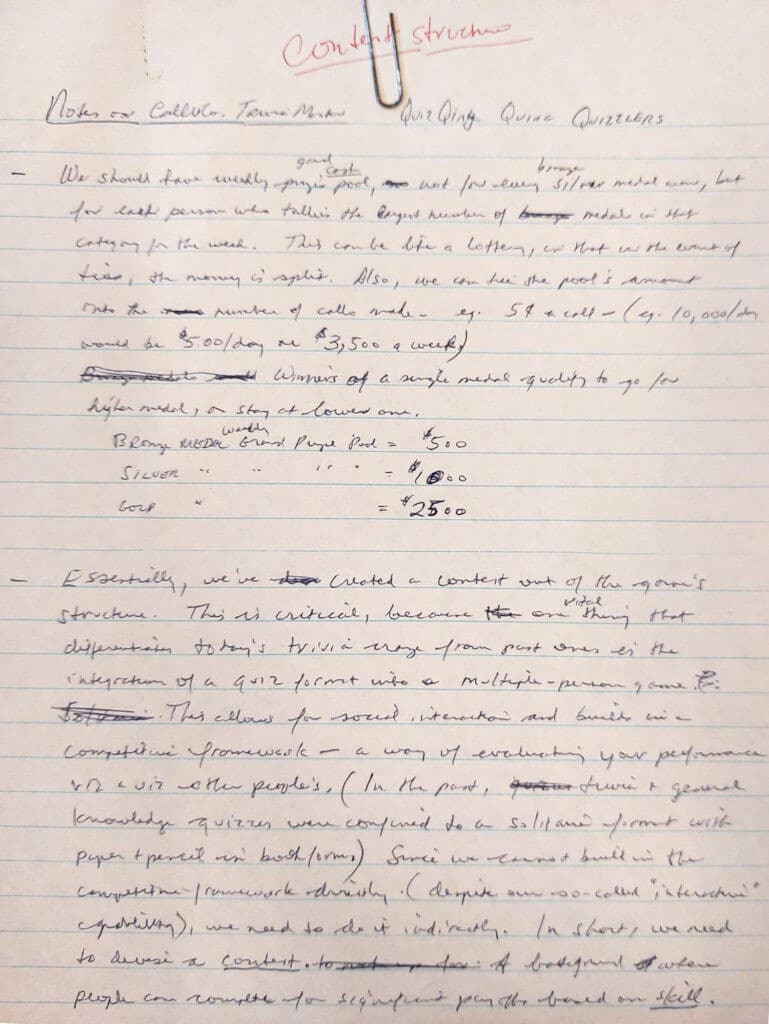 Contest structure
Notes on Trivia Quiz Qing Quing Quizzlers
grand cash bronze
- We should have weekly prize pool, not for every silver medal won, but
for each person who tallies the largest number of medals in that
category for the week. This can be like a lottery, in that in the event of
ties, the money is split. Also, we can tie the pool's amount
into the number of calls made - eg. 5¢ a call - (eg. 10,000/day
would be $5.00/day or $3,500 a week)
Winners of a single medal qualify to go for
higher medal, or stay at lower one.
weekly
Bronze MEDAL Grand Prize Pool = $500
SILVER " " " " = $1000
GOLD " = $2500
- Essentially, we've created a contest out of the game's
vital
structure. This is critical, because one thing that
differentiates today's trivia craze from past ones is the
integration of a quiz format into a multiple-person game.
This allows for social interaction and builds in a
competitive framework - a way of evaluating your performance
viz a viz other people's. (In the past, trivia + general
knowledge quizzes were confined to a solitaire format with
paper + pencil in book form) Since we cannot build in the
competitive framework directly (despite our so-called "interactive"
capability), we need to do it indirectly. In short, we need
to devise a contest. A where
people can compete for significant payoffs based on skill.